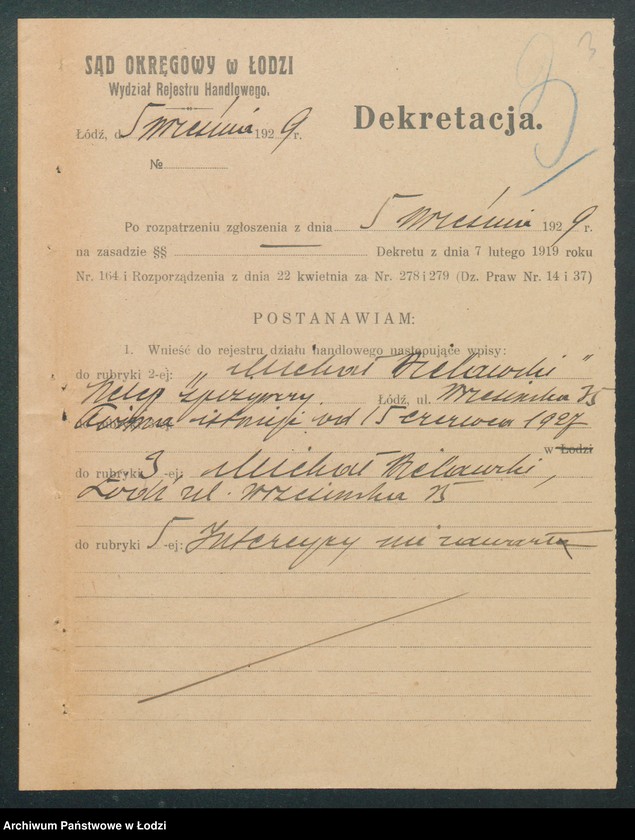 3
SĄD OKRĘGOWY w ŁODZI
Wydział Rejestru Handlowego.
Dekretacja.
Łódź, d. 5 września 1929 r.
№
Po rozpatrzeniu zgłoszenia z dnia 5 września 1929 r.
na zasadzie §§ — Dekretu z dnia 7 lutego 1919 roku
Nr. 164 i Rozporządzenia z dnia 22 kwietnia za Nr. 278 i 279 (Dz. Praw Nr. 14 i 37)
POSTANAWIAM:
1. Wnieść do rejestru działu handlowego następujące wpisy:
do rubryki 2-ej: „Michał
sklep spożywczy. Łódź, ul. Wrzesińska 75
Firma istnieje od 15 czerwca 1927
w Łodzi
do rubryki 3-ej: Michał
Łódź, ul. Wrzesińska 75
do rubryki 5-ej: Intercyzy nie zawarła
Archiwum Państwowe w Łodzi